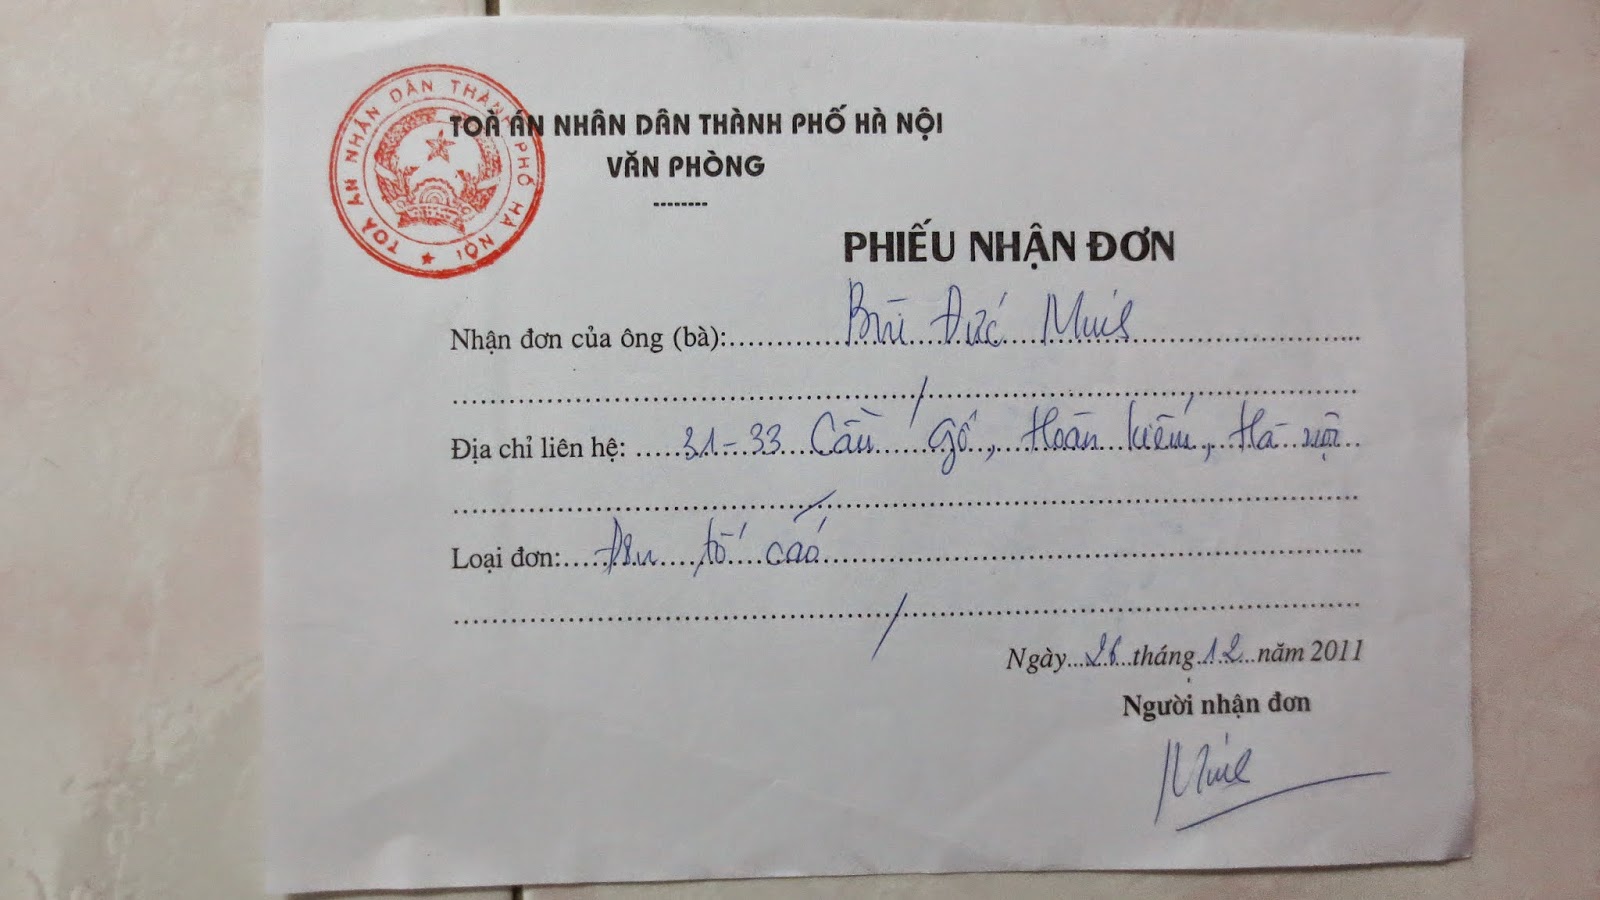 TOÀ ÁN NHÂN DÂN THÀNH PHỐ HÀ NỘI
TOÀ ÁN NHÂN DÂN THÀNH PHỐ HÀ NỘI
VĂN PHÒNG
--------
PHIẾU NHẬN ĐƠN
Nhận đơn của ông (bà): Bùi Đức
Địa chỉ liên hệ: 31-33 Cầu Gỗ, Hoàn Kiếm, Hà Nội
Loại đơn: Đơn tố cáo
Ngày 26 tháng 12 năm 2011
Người nhận đơn